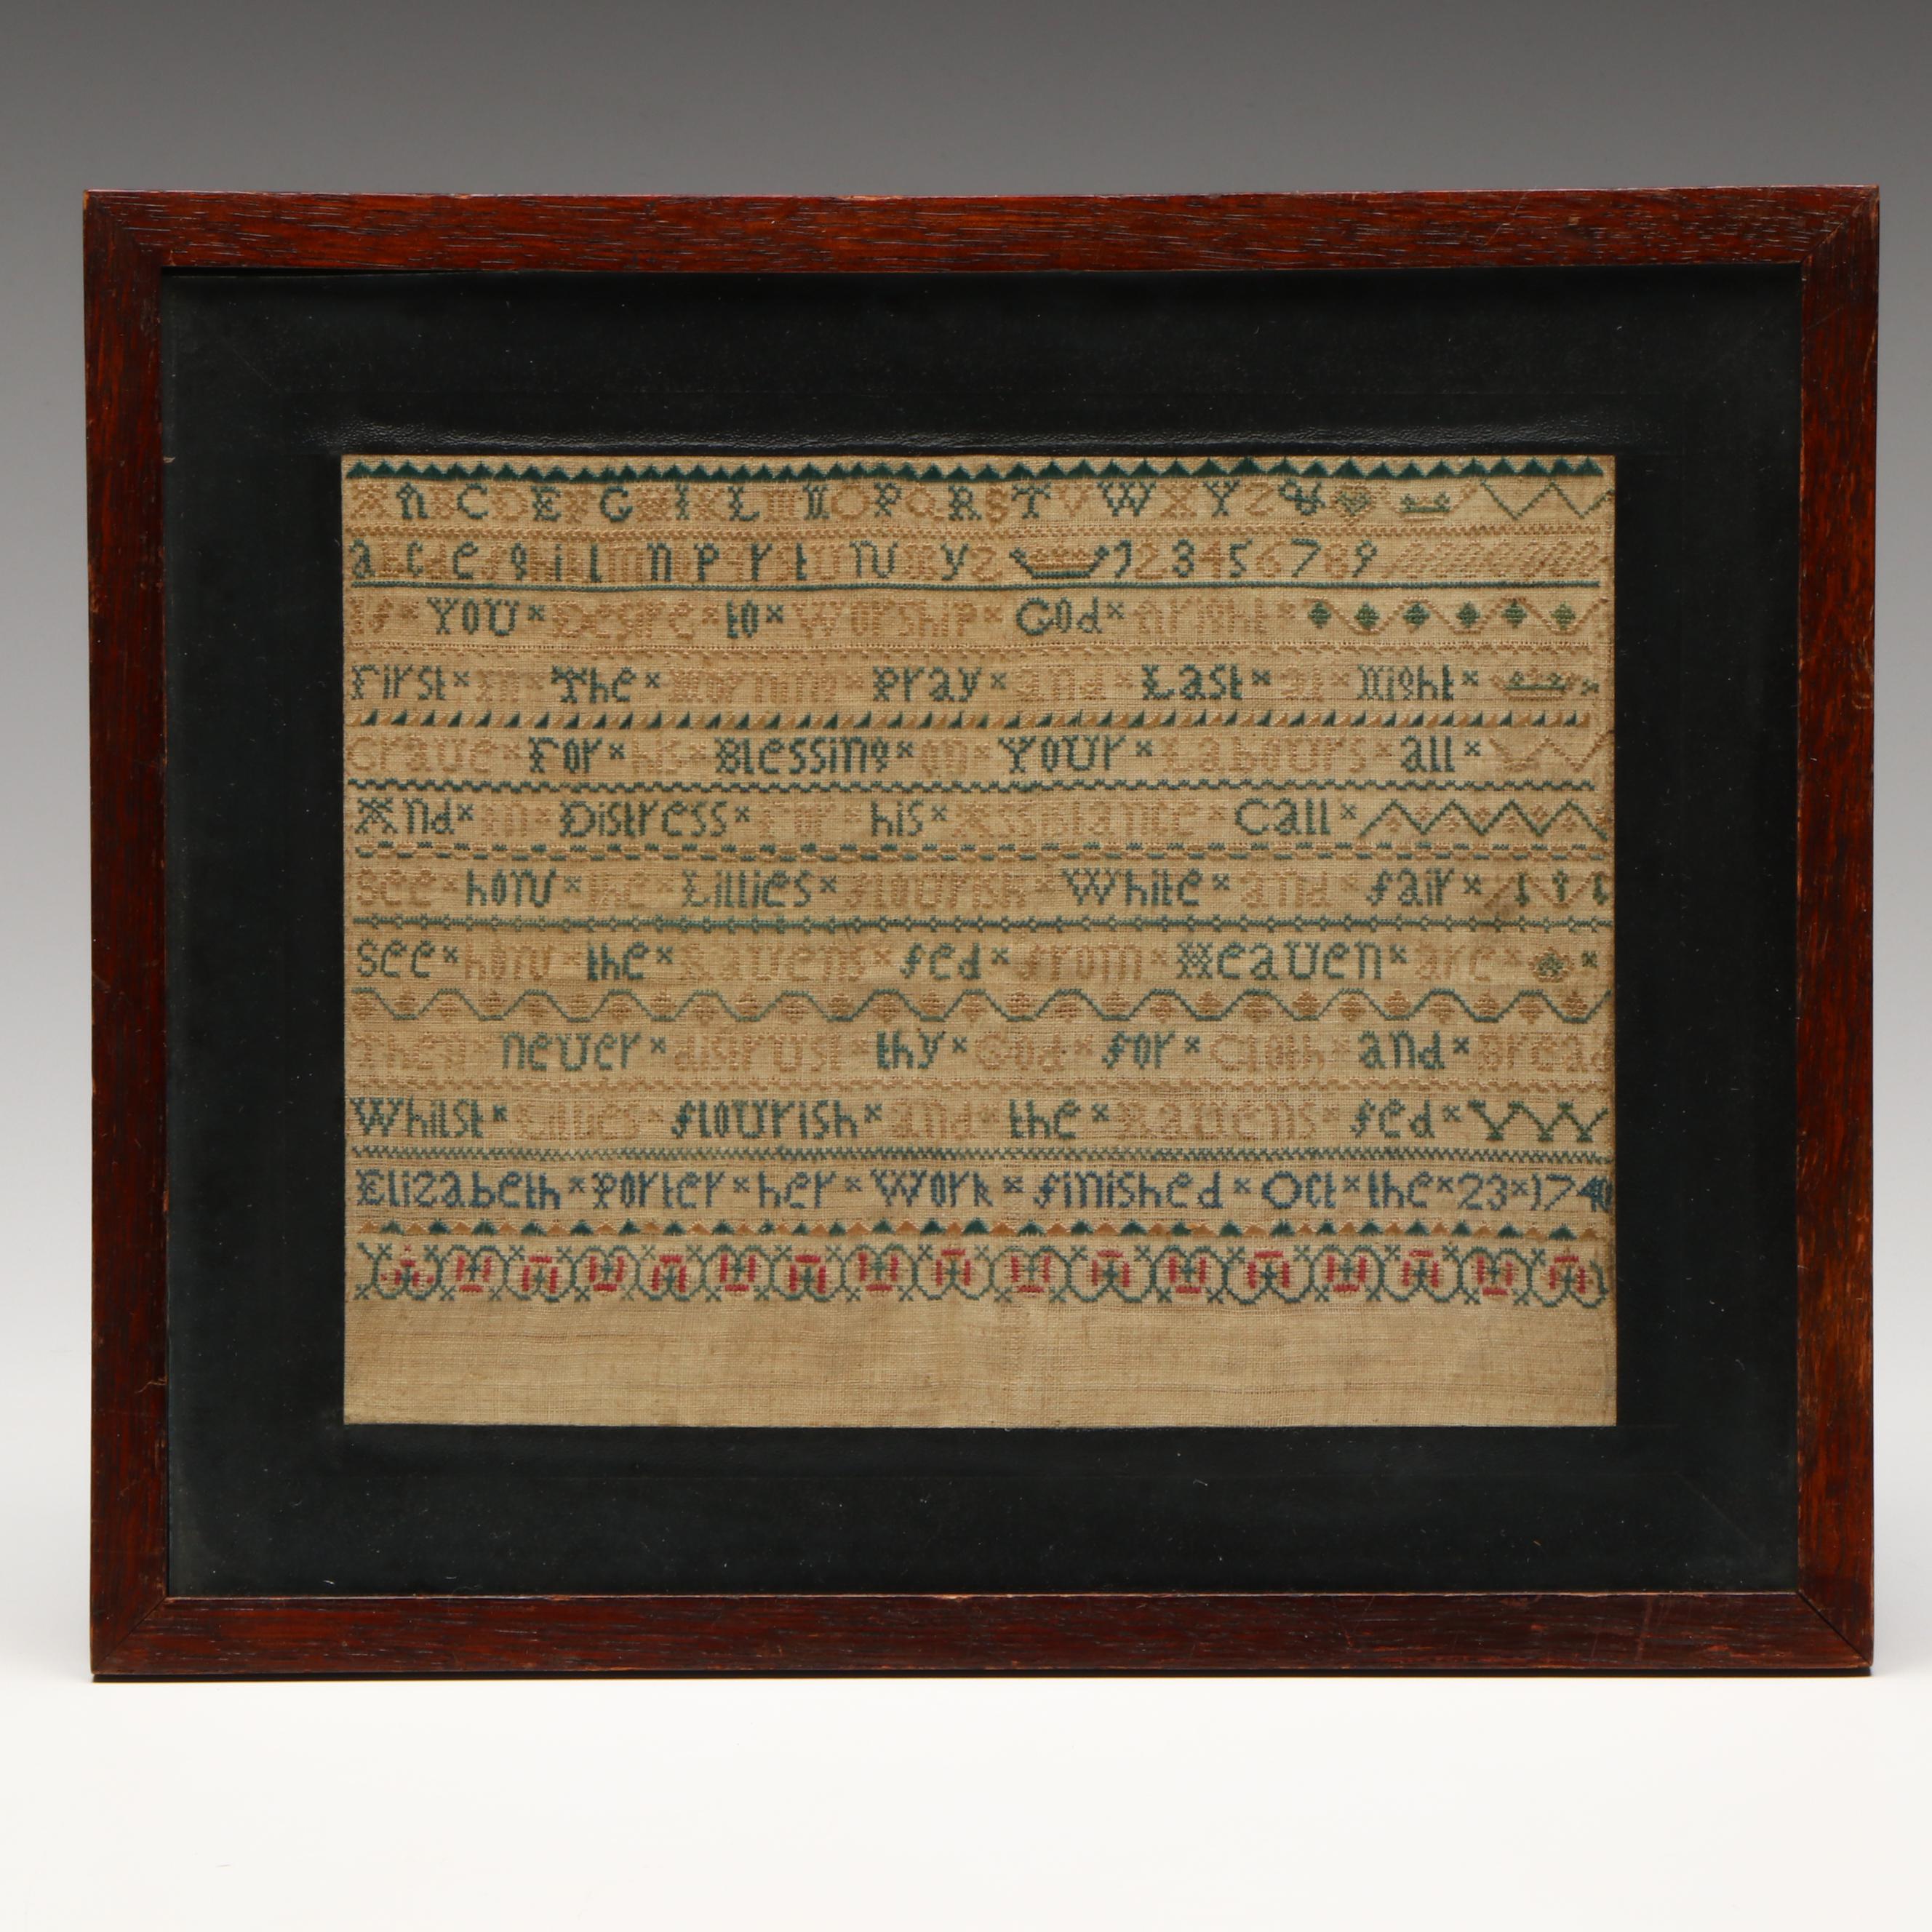 A B C D E F G H I K L M N O P Q R S T V W X Y Z
a b c d e f g h i k l m n o p q r s t u w x y z 1 2 3 4 5 6 7 8 9
If You Desire to Worship God Aright
First in The Morning Pray and Last at Night
Crave For his Blessing on Your Labours all
And in Distress For his Assistance Call
See how the Lillies flourish White and fair
See how the Ravens fed from Heaven are
Then never distrust thy God for Cloth and Bread
Whilst Lilies flourish and the Ravens fed
Elizabeth Porter her Work finished Oct the 23